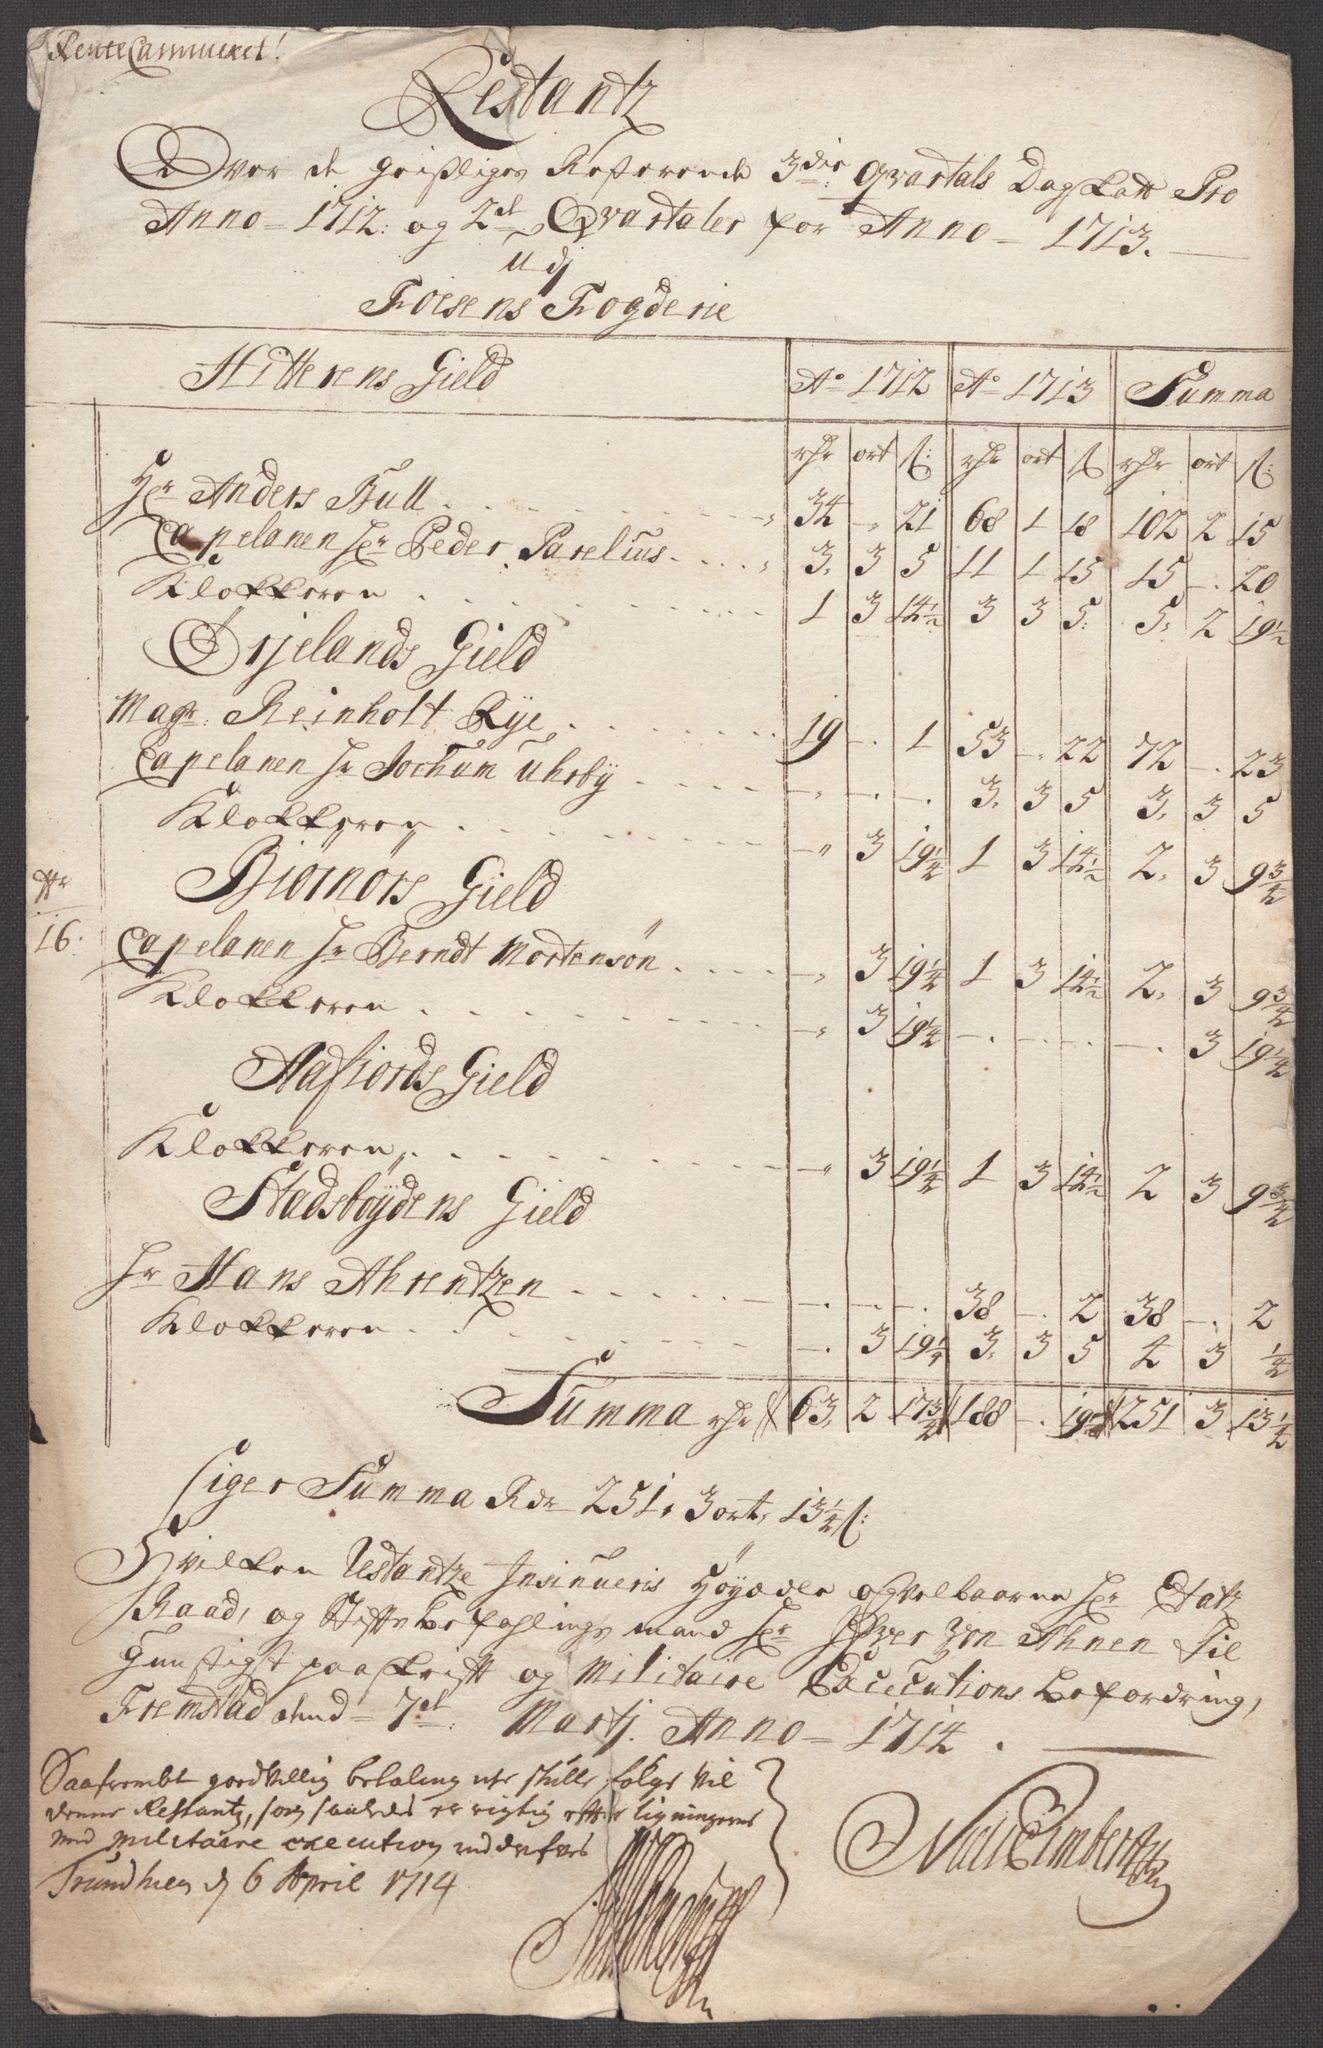 RenteCammeret!
Restantz
Over de geistliges Resterende 3die Qvartals Dagskatt Pro
Anno 1712: og 2de Qvartaler for Anno 1713.
Udj
Foesens Fogderie
Hitterens Gield Ao 1712 Ao 1713 Summa
rdr ort s: rdr ort s rdr ort s:
Hr Anders Bull 34 - 21 68 1 18 102 2 15
Capelanen Hr Peder Parelius 3 3 5 11 1 15 15 - 20
Klokkeren 1 3 14½ 3 3 5 5 2 19½
Ørjelands Gield
Magr: Reinholt Rye 19 - 1 53 - 22 72 - 23
Capelanen Hr Jochum Uhrby - - - 3 3 5 3 3 5
Klokkeren - 3 19¼ 1 3 14½ 2 3 9¾
Biørnørs Gield
Nr
16:
Capelanen Hr Berndt Mortensøn - 3 19¼ 1 3 14½ 2 3 9¾
Klokkeren - 3 19¼ - - - - 3 19¼
Aafiords Gield
Klokkeren - 3 19¼ 1 3 14½ 2 3 9¾
Stadsbøydens Gield
Hr Hans Ahrentzen - - - 38 - 2 38 - 2
Klokkeren - 3 19¼ 3 3 5 4 3 ¼
Summa rdr 63 2 17¾ 188 - 19¾ 251 3 13½
siger Summa Rdr 251, 3 ort, 13½ s:
Hvilken Restantze Insinueris Høyædle og Velbaarne Hr Etatz
Raad, og Stiftsbefahlings mand Hr Ifver von Ahnen Til
Gunstigst paaskrift og Militaire Executions befordring,
Fremstad dend 7de Martj Anno 1714.
Saafrembt goedvillig betaling icke skulle følge, vil
denne Restantz, som saaledes er rigtig efter ligningerne
med militaire execution inddrifves
Trundhiem d 6 April 1714